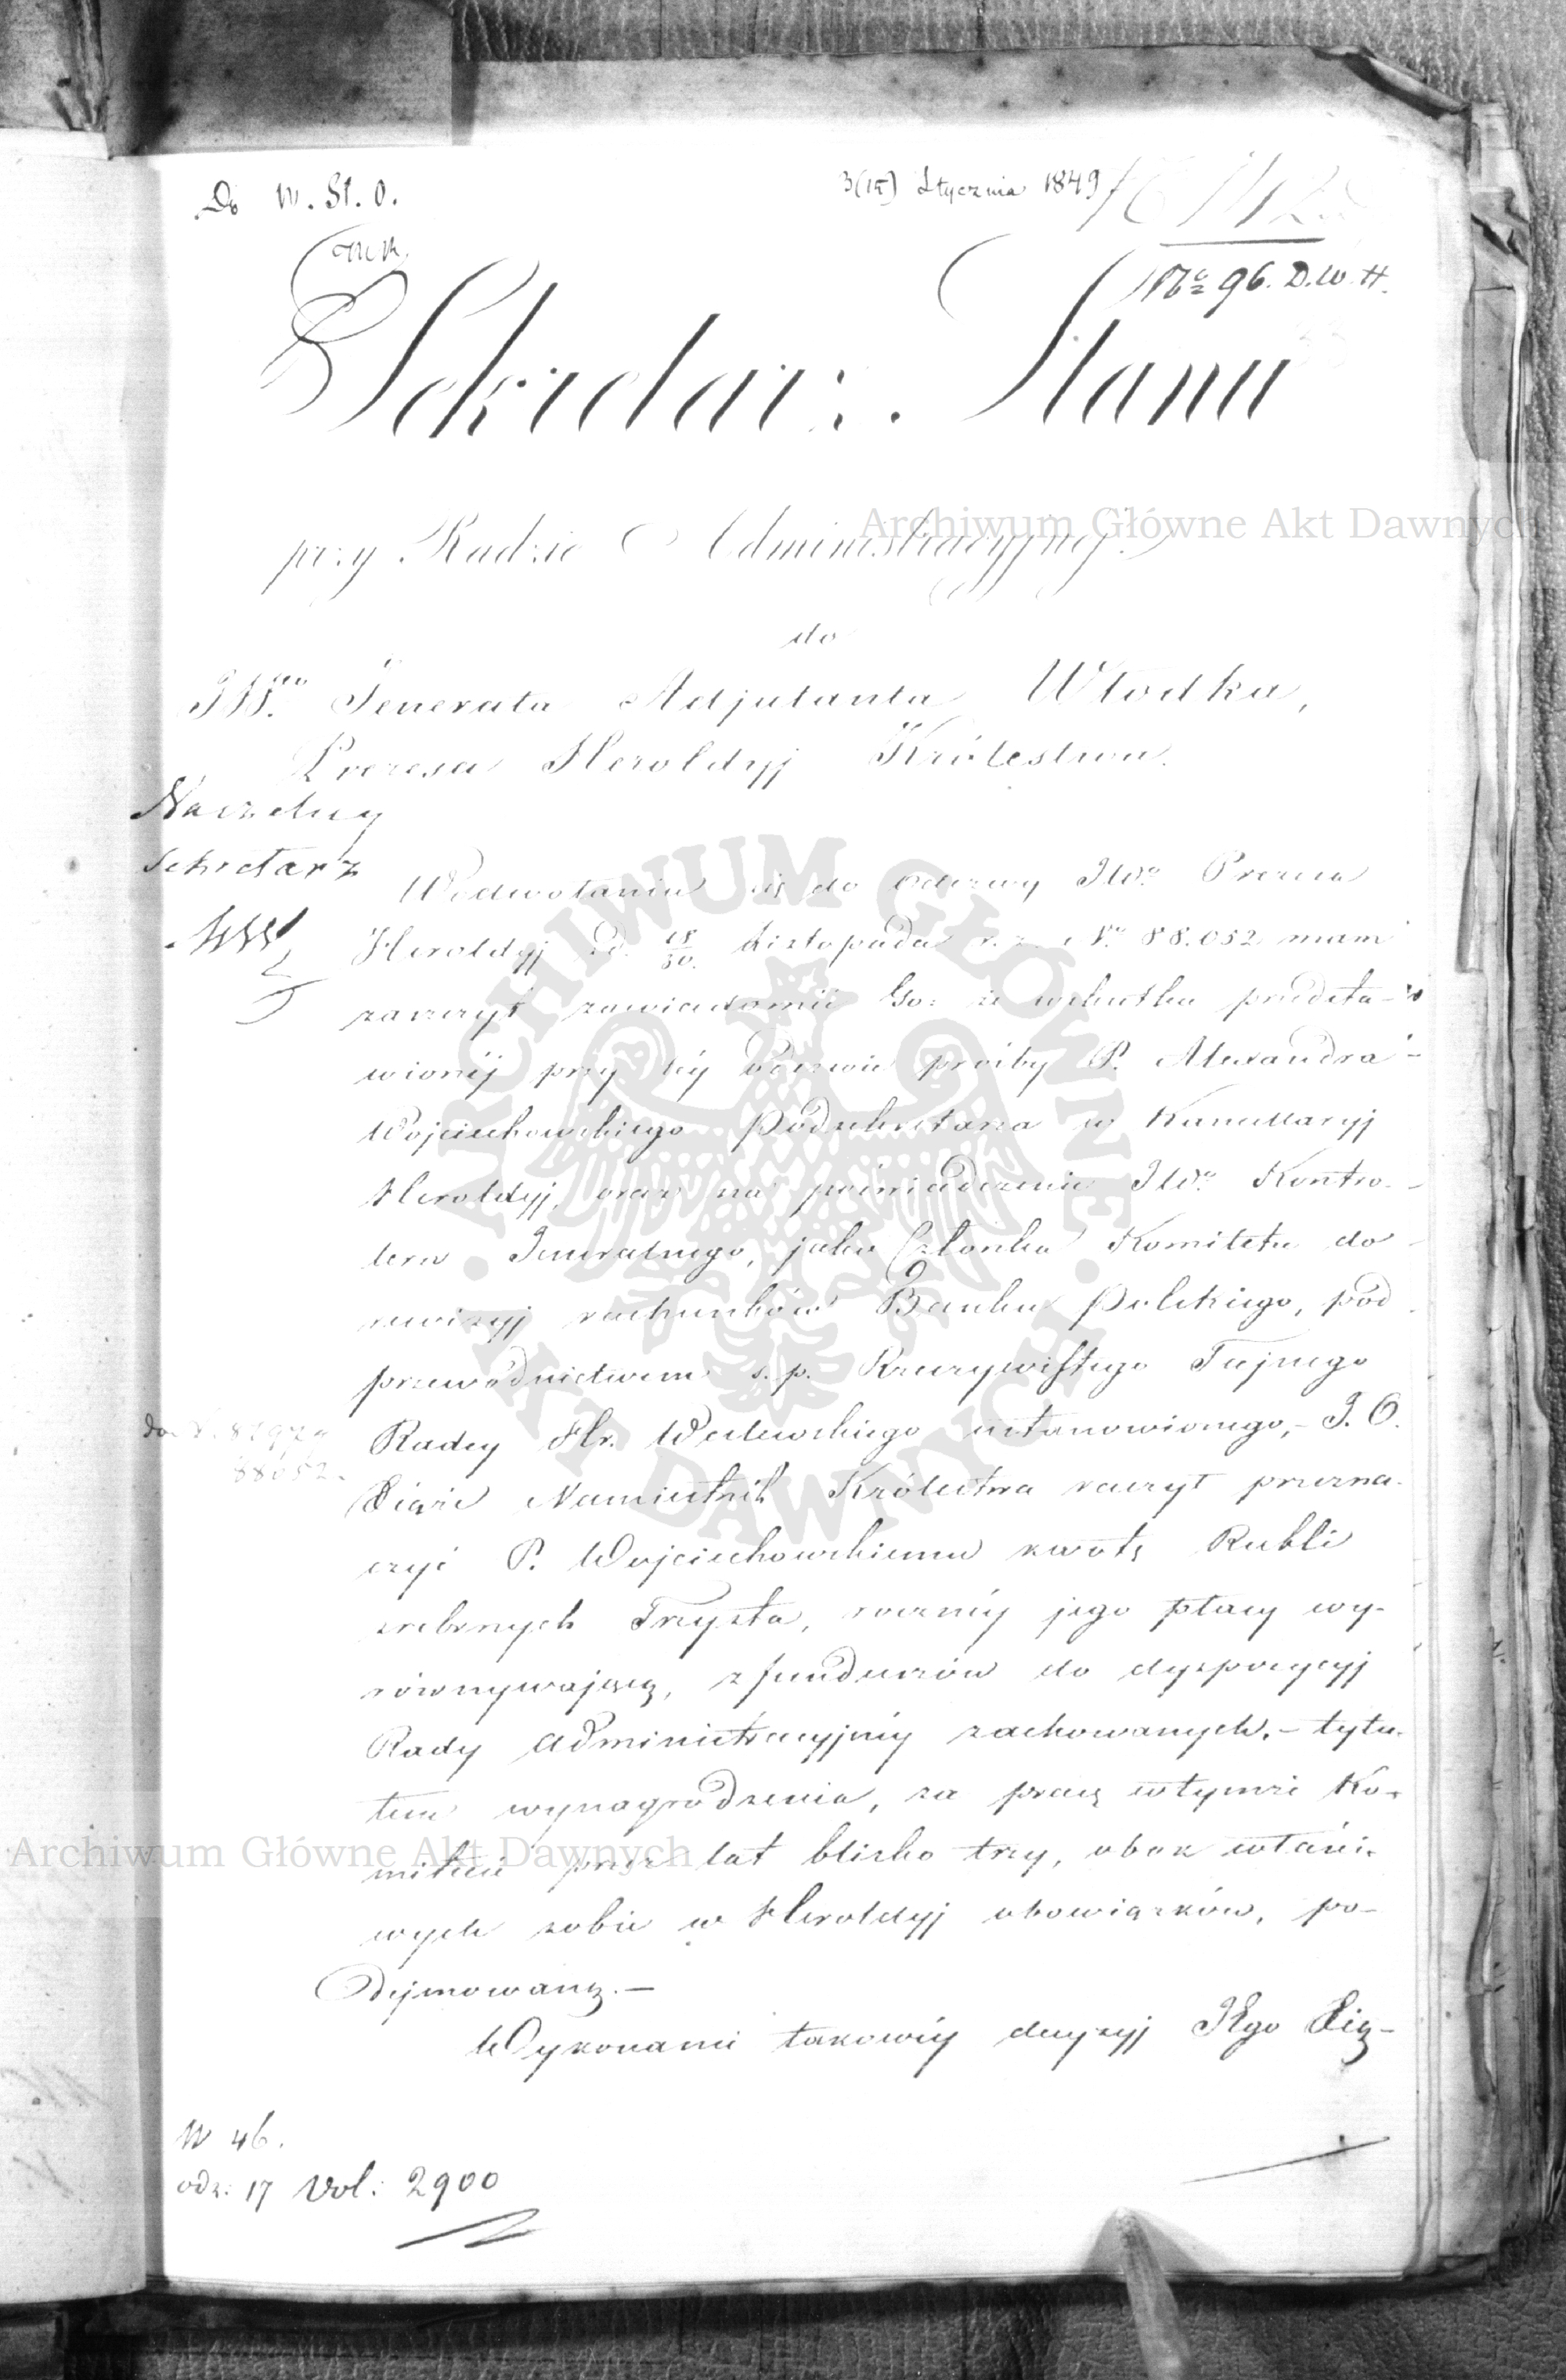 Do W. St. O.
3(15) Stycznia 1849
No 96. D.W.H.
Sekretarz Stanu
przy Radzie Administracyjnej
do
JW. Jenerała Adjutanta Włodka,
Prezesa Heroldyj Królestwa.
Naczelny
Sekretarz
W odwołaniu się do odezwy JWo Prezesa
Heroldyj z d. 18/30 Listopada r. z. No 88.052 mam
zaszczyt zawiadomić Go: iż wskutku przedsta-
wionéj przy téj odezwie prośby P. Alexandra
Wojciechowskiego Podsekretarza w Kancellaryj
Heroldyj, oraz na poświadczenie JWo Kontro-
lera Jeneralnego, jako Członka Komitetu do
rewizyj rachunków Banku Polskiego, pod
przewodnictwem ś. p. Rzeczywistego Tajnego
Radcy Hr. ustanowionego, - J. O.
Xiąże Namiestnik Królestwa raczył przezna-
czyć P. Wojciechowskiemu kwotę Rubli
srebrnych Trzysta, rocznéj jego płacy wy-
równywającą, z funduszów do dyspozycyj
Rady Administracyjnéj zachowanych, - tytu-
łem wynagrodzenia, za pracę w tymże Ko-
mitecie przez lat blisko trzy, obok właści-
wych sobie w Heroldyj obowiązków, po-
dejmowaną. -
do N. 87979
88052.
Wykonanie takowéj decyzyj JEgo Xię-
W 46.
odz: 17 Vol: 2900
Archiwum Główne Akt Dawnych
ARCHIWUM GŁÓWNE AKT DAWNYCH
Archiwum Główne Akt Dawnych